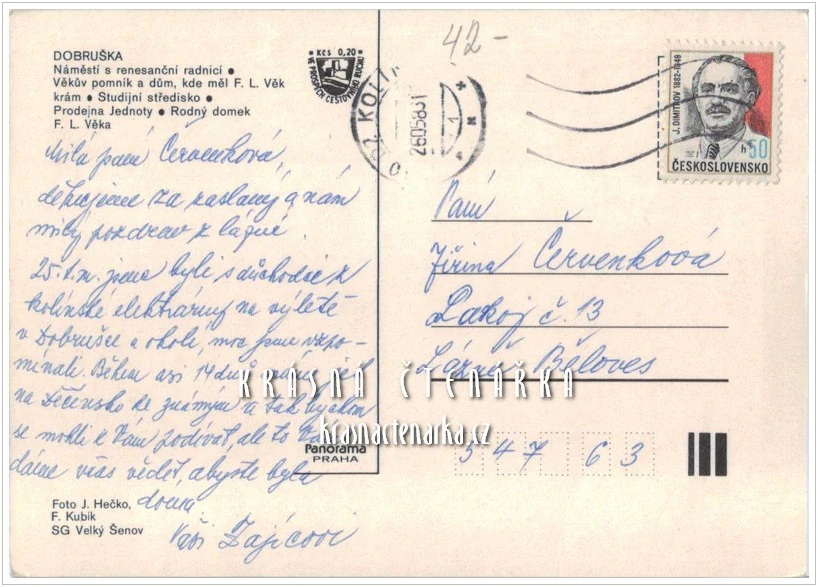 DOBRUŠKA
Náměstí s renesanční radnicí •
Věkův pomník a dům, kde měl F. L. Věk
krám • Studijní středisko •
Prodejna Jednoty • Rodný domek
F. L. Věka
Kčs 0,20
VE PROSPĚCH CESTOVNÍHO RUCHU
42-
26.05.83
J. DIMITROV 1882-1949
h 50
ČESKOSLOVENSKO
Milá paní Červenková,
děkujeme za zaslaný a nám
milý pozdrav z lázní.
25. t. m. jsme byli s důchodci z
kolínské elektrárny na výletě
v Dobrušce a okolí, moc jsme vzpo-
mínali. Během asi 14 dnů
na Děčínsko ke známým a tak bychom
se mohli k Vám podívat, ale to Vám
dáme včas vědět, abyste byla
doma
Vaši Zajícovi
Paní
Jiřina Červenková
Lakoj č. 13
Lázně Běloves
547 63
KRÁSNÁ ČTENÁŘKA
krasnactenarka.cz
Panorama
PRAHA
Foto J. Hečko,
F. Kubík
SG Velký Šenov